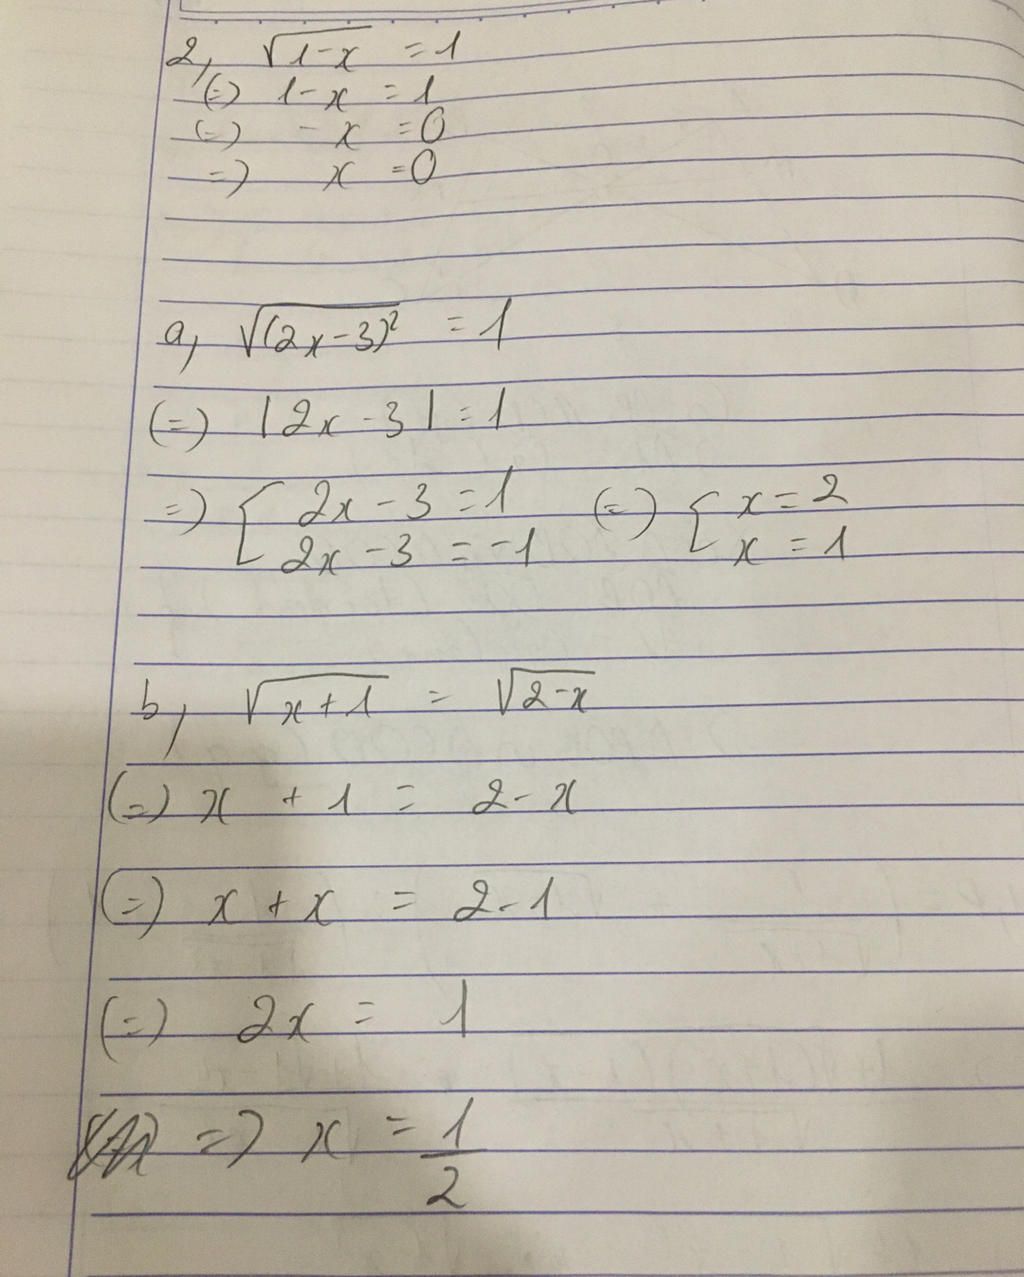 2, √(1-x) = 1
(=) 1-x = 1
(=) -x = 0
=) x = 0
a, √((2x-3)²) = 1
(=) |2x-3| = 1
=) [ 2x-3 = 1 (=) [ x = 2
2x-3 = -1 x = 1
b, √(x+1) = √(2-x)
(=) x + 1 = 2-x
(=) x + x = 2-1
(=) 2x = 1
=) x = 1/2